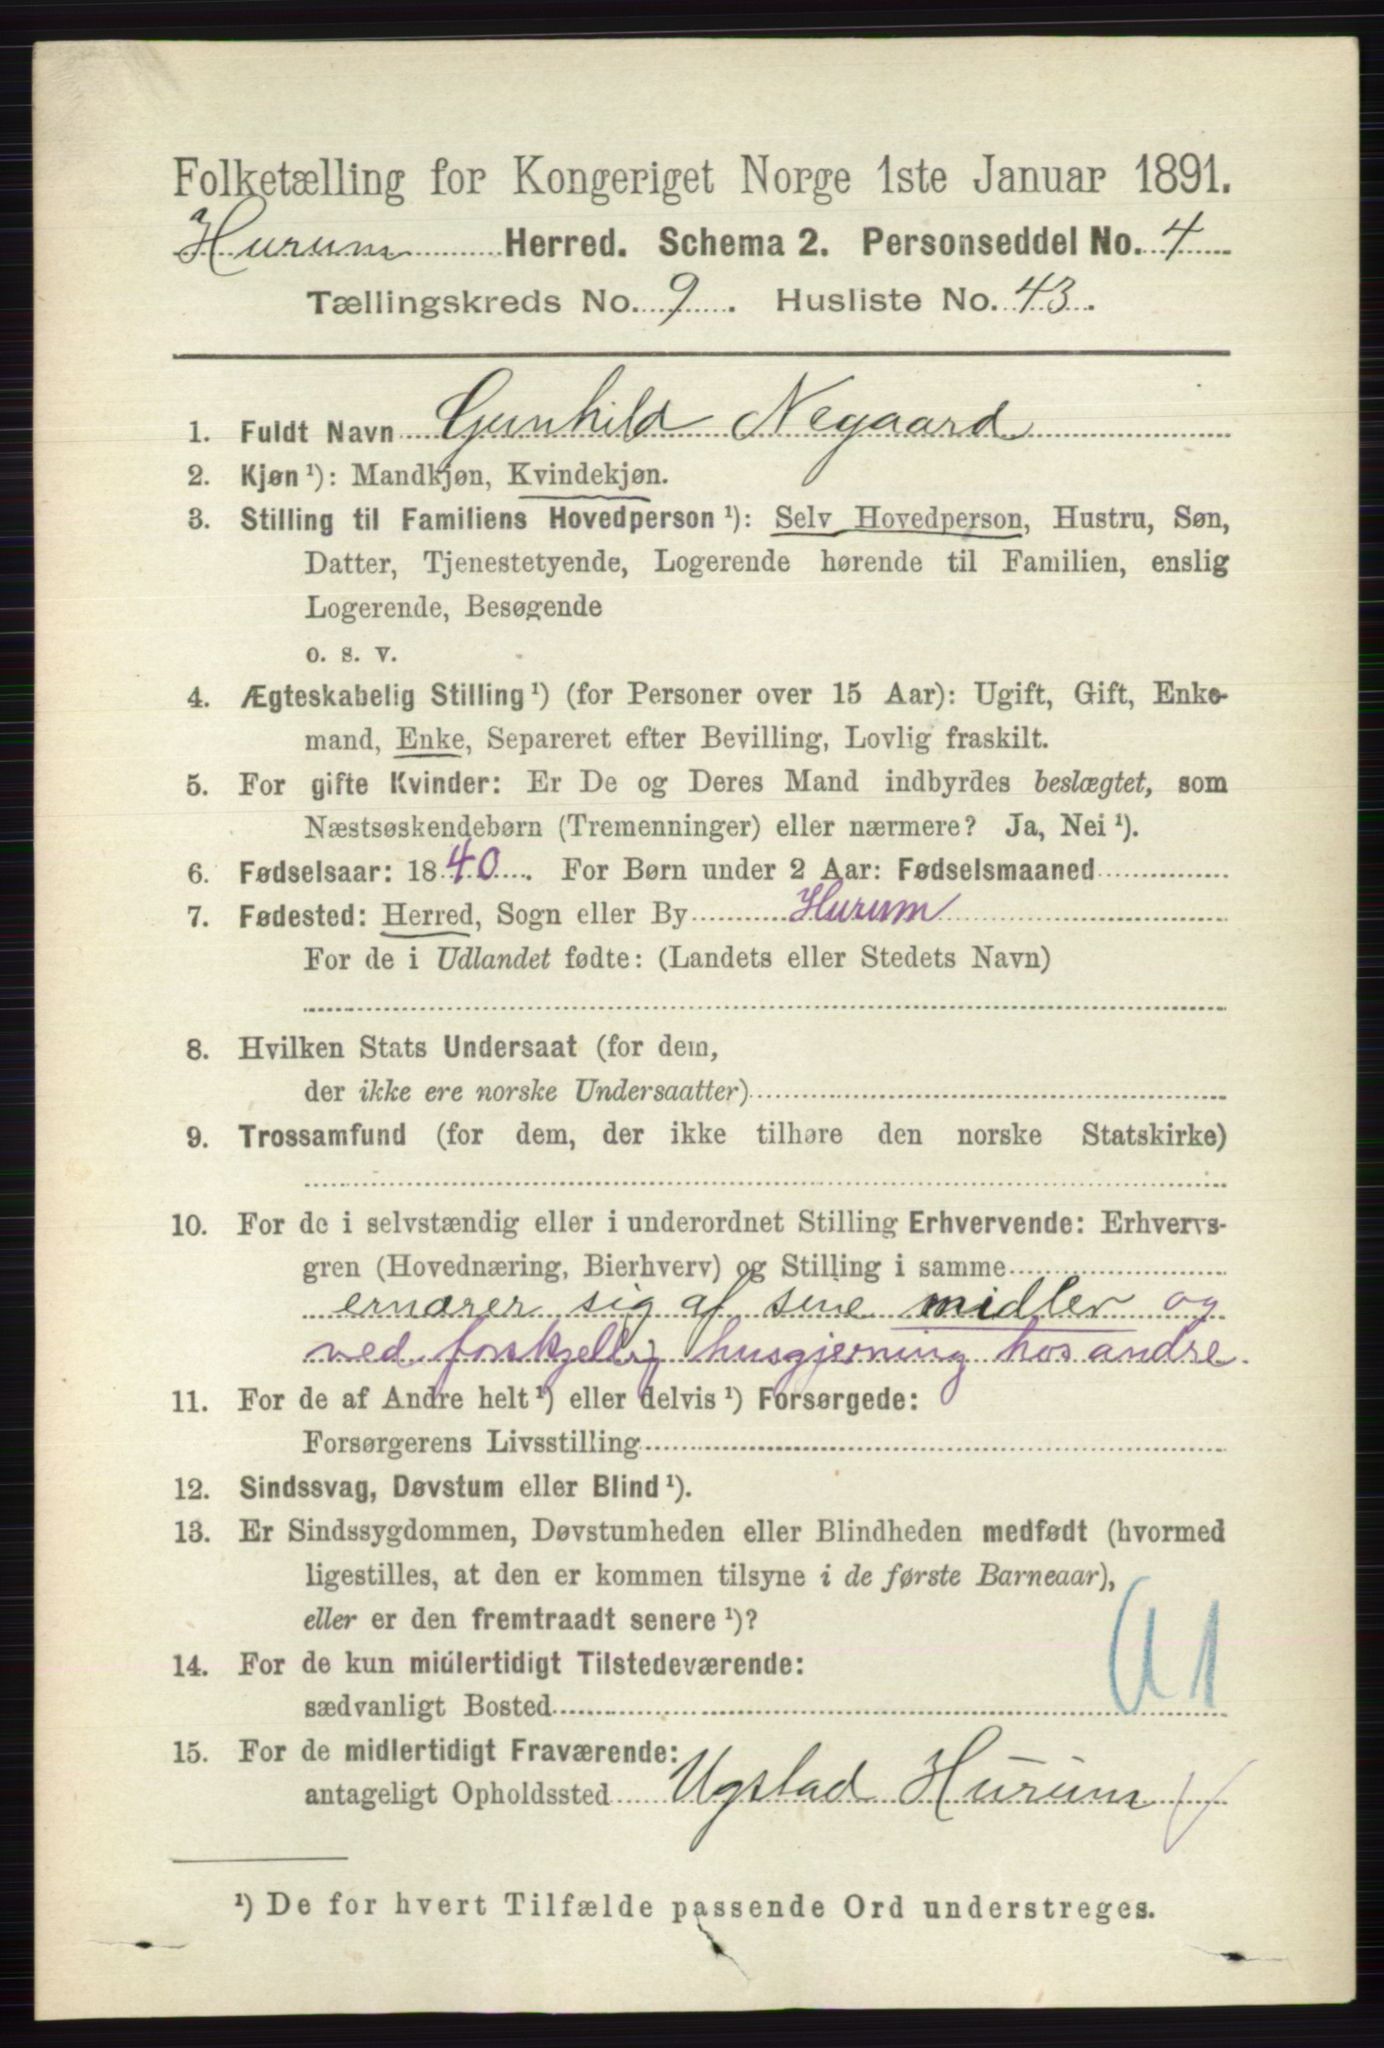 Folketælling for Kongeriget Norge 1ste Januar 1891.
Hurum Herred. Schema 2. Personseddel No. 4
Tællingskreds No. 9. Husliste No. 43.
1. Fuldt Navn Gunhild Negaard
2. Kjøn ¹): Mandkjøn, Kvindekjøn.
3. Stilling til Familiens Hovedperson ¹): Selv Hovedperson, Hustru, Søn,
Datter, Tjenestetyende, Logerende hørende til Familien, enslig
Logerende, Besøgende
o. s. v.
4. Ægteskabelig Stilling ¹) (for Personer over 15 Aar): Ugift, Gift, Enke-
mand, Enke, Separeret efter Bevilling, Lovlig fraskilt.
5. For gifte Kvinder: Er De og Deres Mand indbyrdes beslægtet, som
Næstsøskendebørn (Tremenninger) eller nærmere? Ja, Nei ¹).
6. Fødselsaar: 1840. For Børn under 2 Aar: Fødselsmaaned
7. Fødested: Herred, Sogn eller By Hurum
For de i Udlandet fødte: (Landets eller Stedets Navn)
8. Hvilken Stats Undersaat (for dem,
der ikke ere norske Undersaatter)
9. Trossamfund (for dem, der ikke tilhøre den norske Statskirke)
10. For de i selvstændig eller i underordnet Stilling Erhvervende: Erhvervs-
gren (Hovednæring, Bierhverv) og Stilling i samme
ernærer sig af sine midler og
ved forskjellig husgjerning hos andre.
11. For de af Andre helt ¹) eller delvis ¹) Forsørgede:
Forsørgerens Livsstilling
12. Sindssvag, Døvstum eller Blind ¹).
13. Er Sindssygdommen, Døvstumheden eller Blindheden medfødt (hvormed
ligestilles, at den er kommen tilsyne i de første Barneaar),
eller er den fremtraadt senere ¹)?
14. For de kun midlertidigt Tilstedeværende:
sædvanligt Bosted
15. For de midlertidigt Fraværende:
antageligt Opholdssted Ugstad Hurum
¹) De for hvert Tilfælde passende Ord understreges.